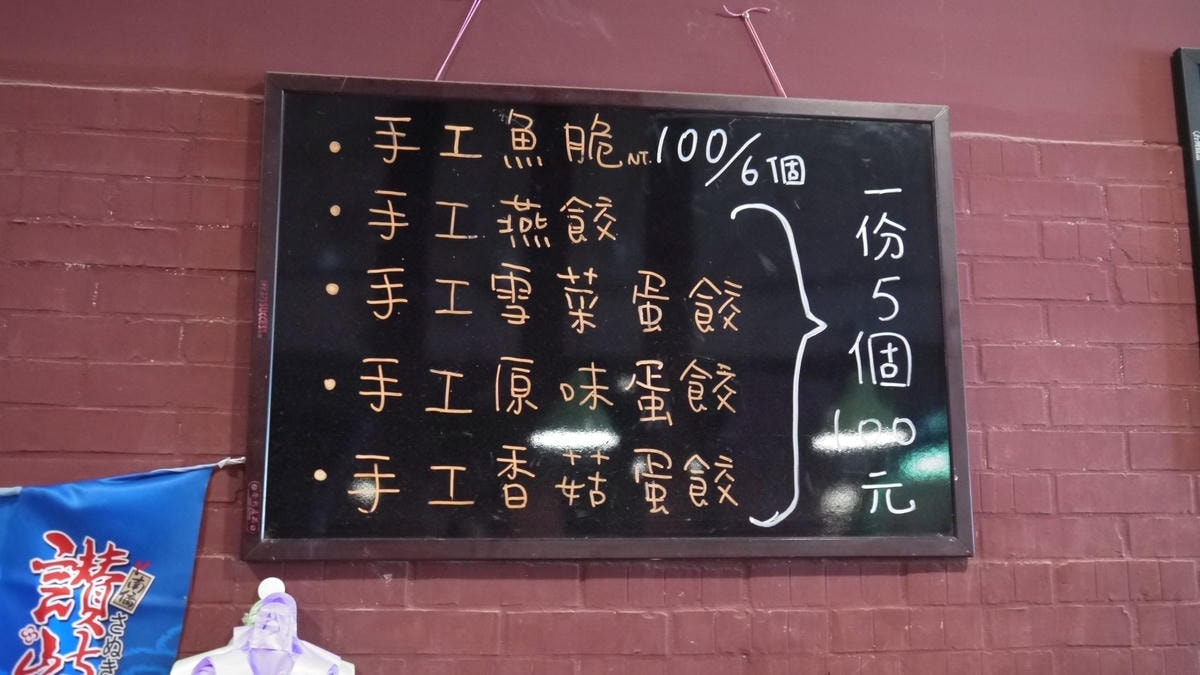 手工魚脆NT.100/6個
手工燕餃
手工雪菜蛋餃
手工原味蛋餃
手工香菇蛋餃
一份5個100元
讃
さぬき